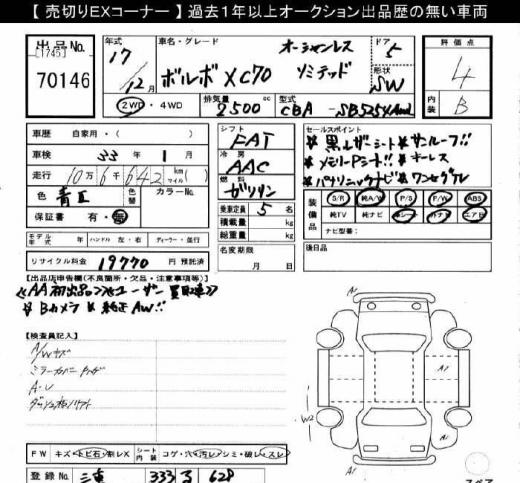 【 売切りEXコーナー 】過去1年以上オークション出品歴の無い車両
出品No. 年式 車名・グレード オーシャンレス ドア 評価点
[1745] 17 ボルボ XC70 リミテッド 5 4
70146 12月 形状 SW
2WD・4WD 排気量 2500 cc 型式 CBA-SB5254AWL 内装 B
車歴 自家用・( ) シフト FAT セールスポイント
車検 33年 1月 冷房 AAC * 黒レザーシート * サンルーフ!!
走行 10万6千642 km マイル ( ) * メモリーPシート!! * キーレス
色 青II 色替 カラーNo. 燃料 ガソリン * パナソニックナビ * ワンセグTV
保証書 有・無 乗車定員 5名 装備品 S/R 純A/W P/S P/W ABS
積載量 kg 純TV 純ナビ 革シート エアB
モデル年式 年 ハンドル 左・右 ディーラー・並行 総重量 kg ナビ型番:
リサイクル料金 19770円 預託済 名変期限 月 日 後日品
【出品店申告欄(不良箇所・欠品・注意事項等)】
《AA初出品 ユーザー買取車》
* Bカメラ * 純正AW!!
【検査員記入】
A/Wキズ
ミラーカバー
A・U
ダッシュ
A1
A1
W2
A1
FW キズ・トビ石・割レX シート内装 コゲ・穴・汚レ・シミ・破レ・スレ
登録No. 三重 333 る 628
スペア